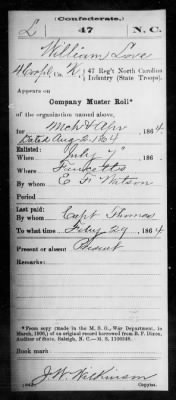 (Confederate.)
L 47 N. C.
William Love
4 Corpl, Co. K, 47 Reg't North Carolina
Infantry (State Troops).
Appears on
Company Muster Roll*
of the organization named above,
for Mch & Apr, 1864
Dated Aug 2 1864
Enlisted:
When July 7
Where Faucetts
By whom E F Watson
Period
Last paid:
By whom Capt Thomas
To what time Feby 29, 1864
Present or absent Present
Remarks:
*From copy (made in the M. S. O., War Department, in
March, 1908,) of an original record borrowed from B. F. Dixon,
Auditor of State, Raleigh, N. C.
Book mark
J. W. Wilkinson
Copyist.